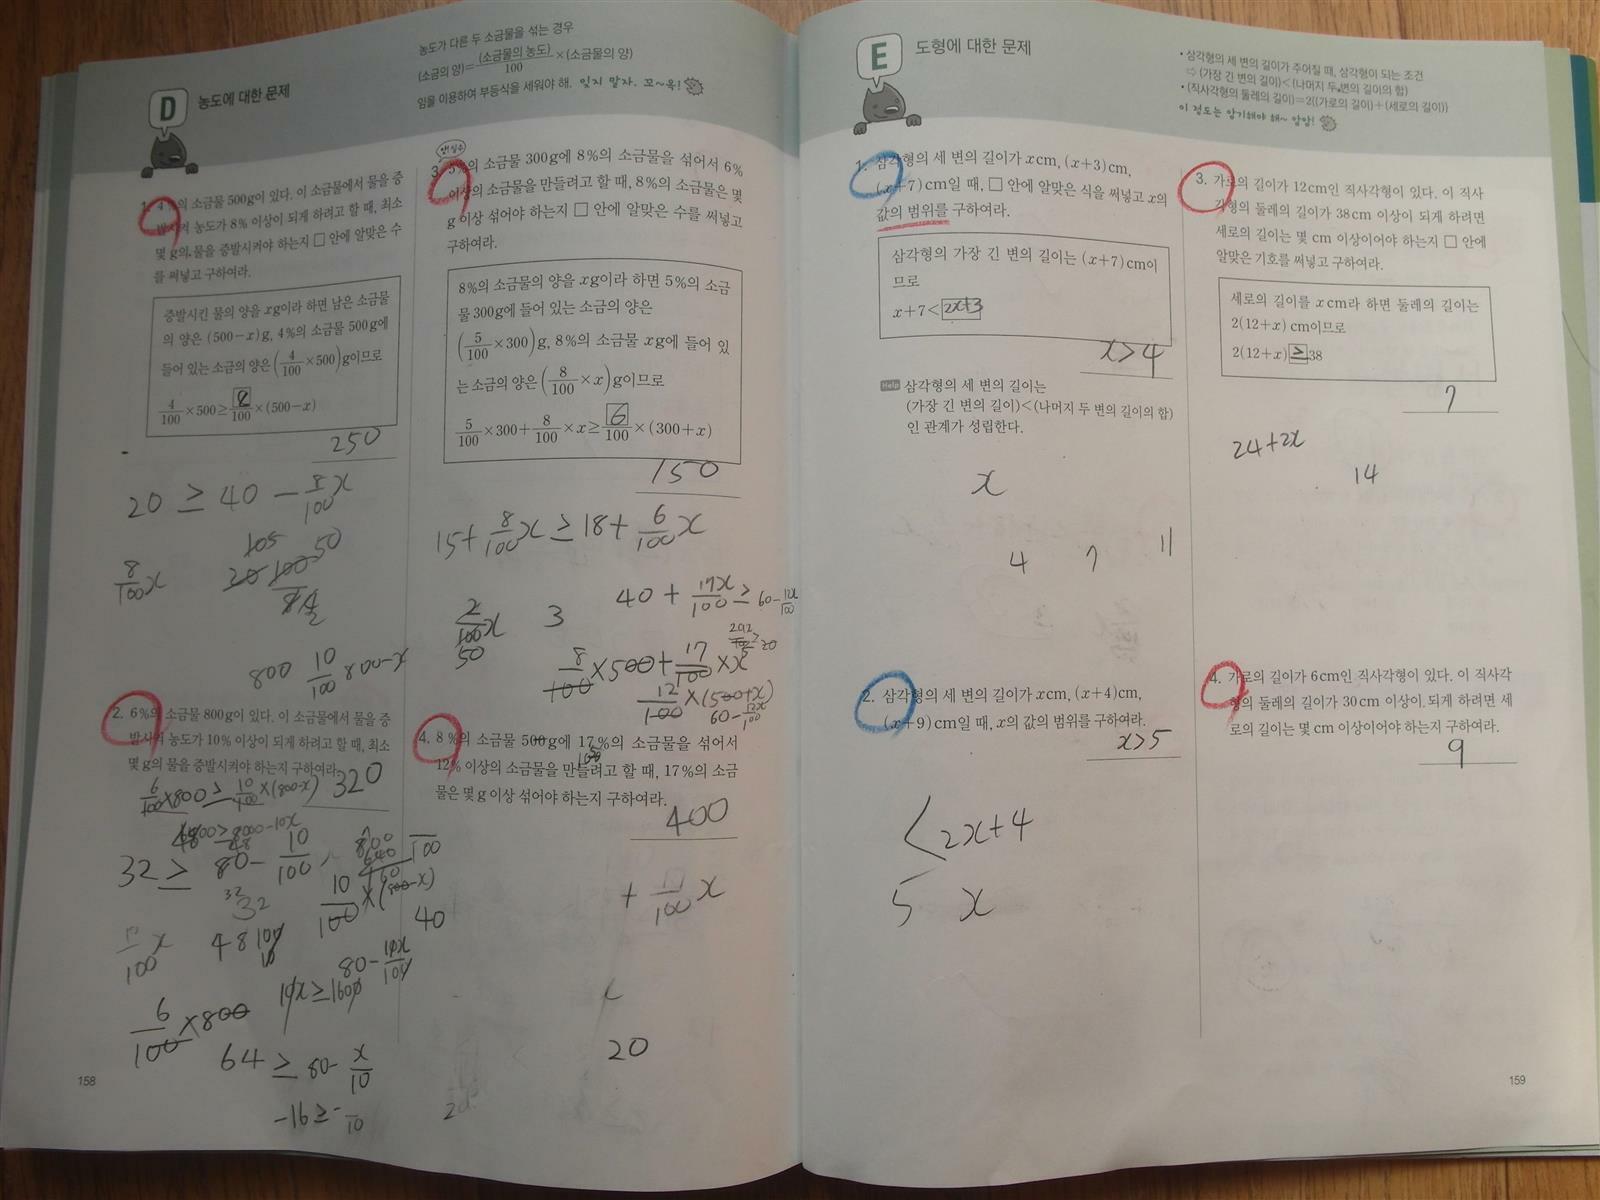 D 농도에 대한 문제
농도가 다른 두 소금물을 섞는 경우
(소금의 양)=(소금물의 농도)/100×(소금물의 양)
임을 이용하여 부등식을 세워야 해. 잊지 말자. 꼬~옥!
1. 4%의 소금물 500g이 있다. 이 소금물에서 물을 증
발시켜 농도가 8% 이상이 되게 하려고 할 때, 최소
몇 g의 물을 증발시켜야 하는지 □ 안에 알맞은 수
를 써넣고 구하여라.
증발시킨 물의 양을 xg이라 하면 남은 소금물
의 양은 (500-x)g, 4%의 소금물 500g에
들어 있는 소금의 양은 (4/100×500)g이므로
4/100×500≥8/100×(500-x)
250
20 ≥ 40 - 8/100x
105 50
8/100x
800 10/100 800-x
2. 6%의 소금물 800g이 있다. 이 소금물에서 물을 증
발시켜 농도가 10% 이상이 되게 하려고 할 때, 최소
몇 g의 물을 증발시켜야 하는지 구하여라.
320
6/100×800≥10/100×(800-x)
32 ≥ 80-10/100
32
10/100×(800-x)
40
48
80-10x/100
10x≥1600
6/100×800
64 ≥ 80-x/10
-16≥-/10
158
3. 5%의 소금물 300g에 8%의 소금물을 섞어서 6%
이상의 소금물을 만들려고 할 때, 8%의 소금물은 몇
g 이상 섞어야 하는지 □ 안에 알맞은 수를 써넣고
구하여라.
8%의 소금물의 양을 xg이라 하면 5%의 소금
물 300g에 들어 있는 소금의 양은
(5/100×300)g, 8%의 소금물 xg에 들어 있
는 소금의 양은 (8/100×x)g이므로
5/100×300+8/100×x≥6/100×(300+x)
150
15+8/100x≥18+6/100x
2/100x 3
50
40+17x/100≥60-12x/100
8/100×500+17/100×x
12/100×(500+x)
60-12x/100
4. 8%의 소금물 500g에 17%의 소금물을 섞어서
12% 이상의 소금물을 만들려고 할 때, 17%의 소금
물은 몇 g 이상 섞어야 하는지 구하여라.
400
20
E 도형에 대한 문제
• 삼각형의 세 변의 길이가 주어질 때, 삼각형이 되는 조건
⇨ (가장 긴 변의 길이)<(나머지 두 변의 길이의 합)
• (직사각형의 둘레의 길이)=2{(가로의 길이)+(세로의 길이)}
이 정도는 암기해야 해~ 암암!
1. 삼각형의 세 변의 길이가 xcm, (x+3)cm,
(x+7)cm일 때, □ 안에 알맞은 식을 써넣고 x의
값의 범위를 구하여라.
삼각형의 가장 긴 변의 길이는 (x+7)cm이
므로
x+7<2x+3
x>4
Help 삼각형의 세 변의 길이는
(가장 긴 변의 길이)<(나머지 두 변의 길이의 합)
인 관계가 성립한다.
x
4 7 11
2. 삼각형의 세 변의 길이가 xcm, (x+4)cm,
(x+9)cm일 때, x의 값의 범위를 구하여라.
x>5
<2x+4
5 x
3. 가로의 길이가 12cm인 직사각형이 있다. 이 직사
각형의 둘레의 길이가 38cm 이상이 되게 하려면
세로의 길이는 몇 cm 이상이어야 하는지 □ 안에
알맞은 기호를 써넣고 구하여라.
세로의 길이를 xcm라 하면 둘레의 길이는
2(12+x)cm이므로
2(12+x)≥38
7
24+2x
14
4. 가로의 길이가 6cm인 직사각형이 있다. 이 직사각
형의 둘레의 길이가 30cm 이상이 되게 하려면 세
로의 길이는 몇 cm 이상이어야 하는지 구하여라.
9
159